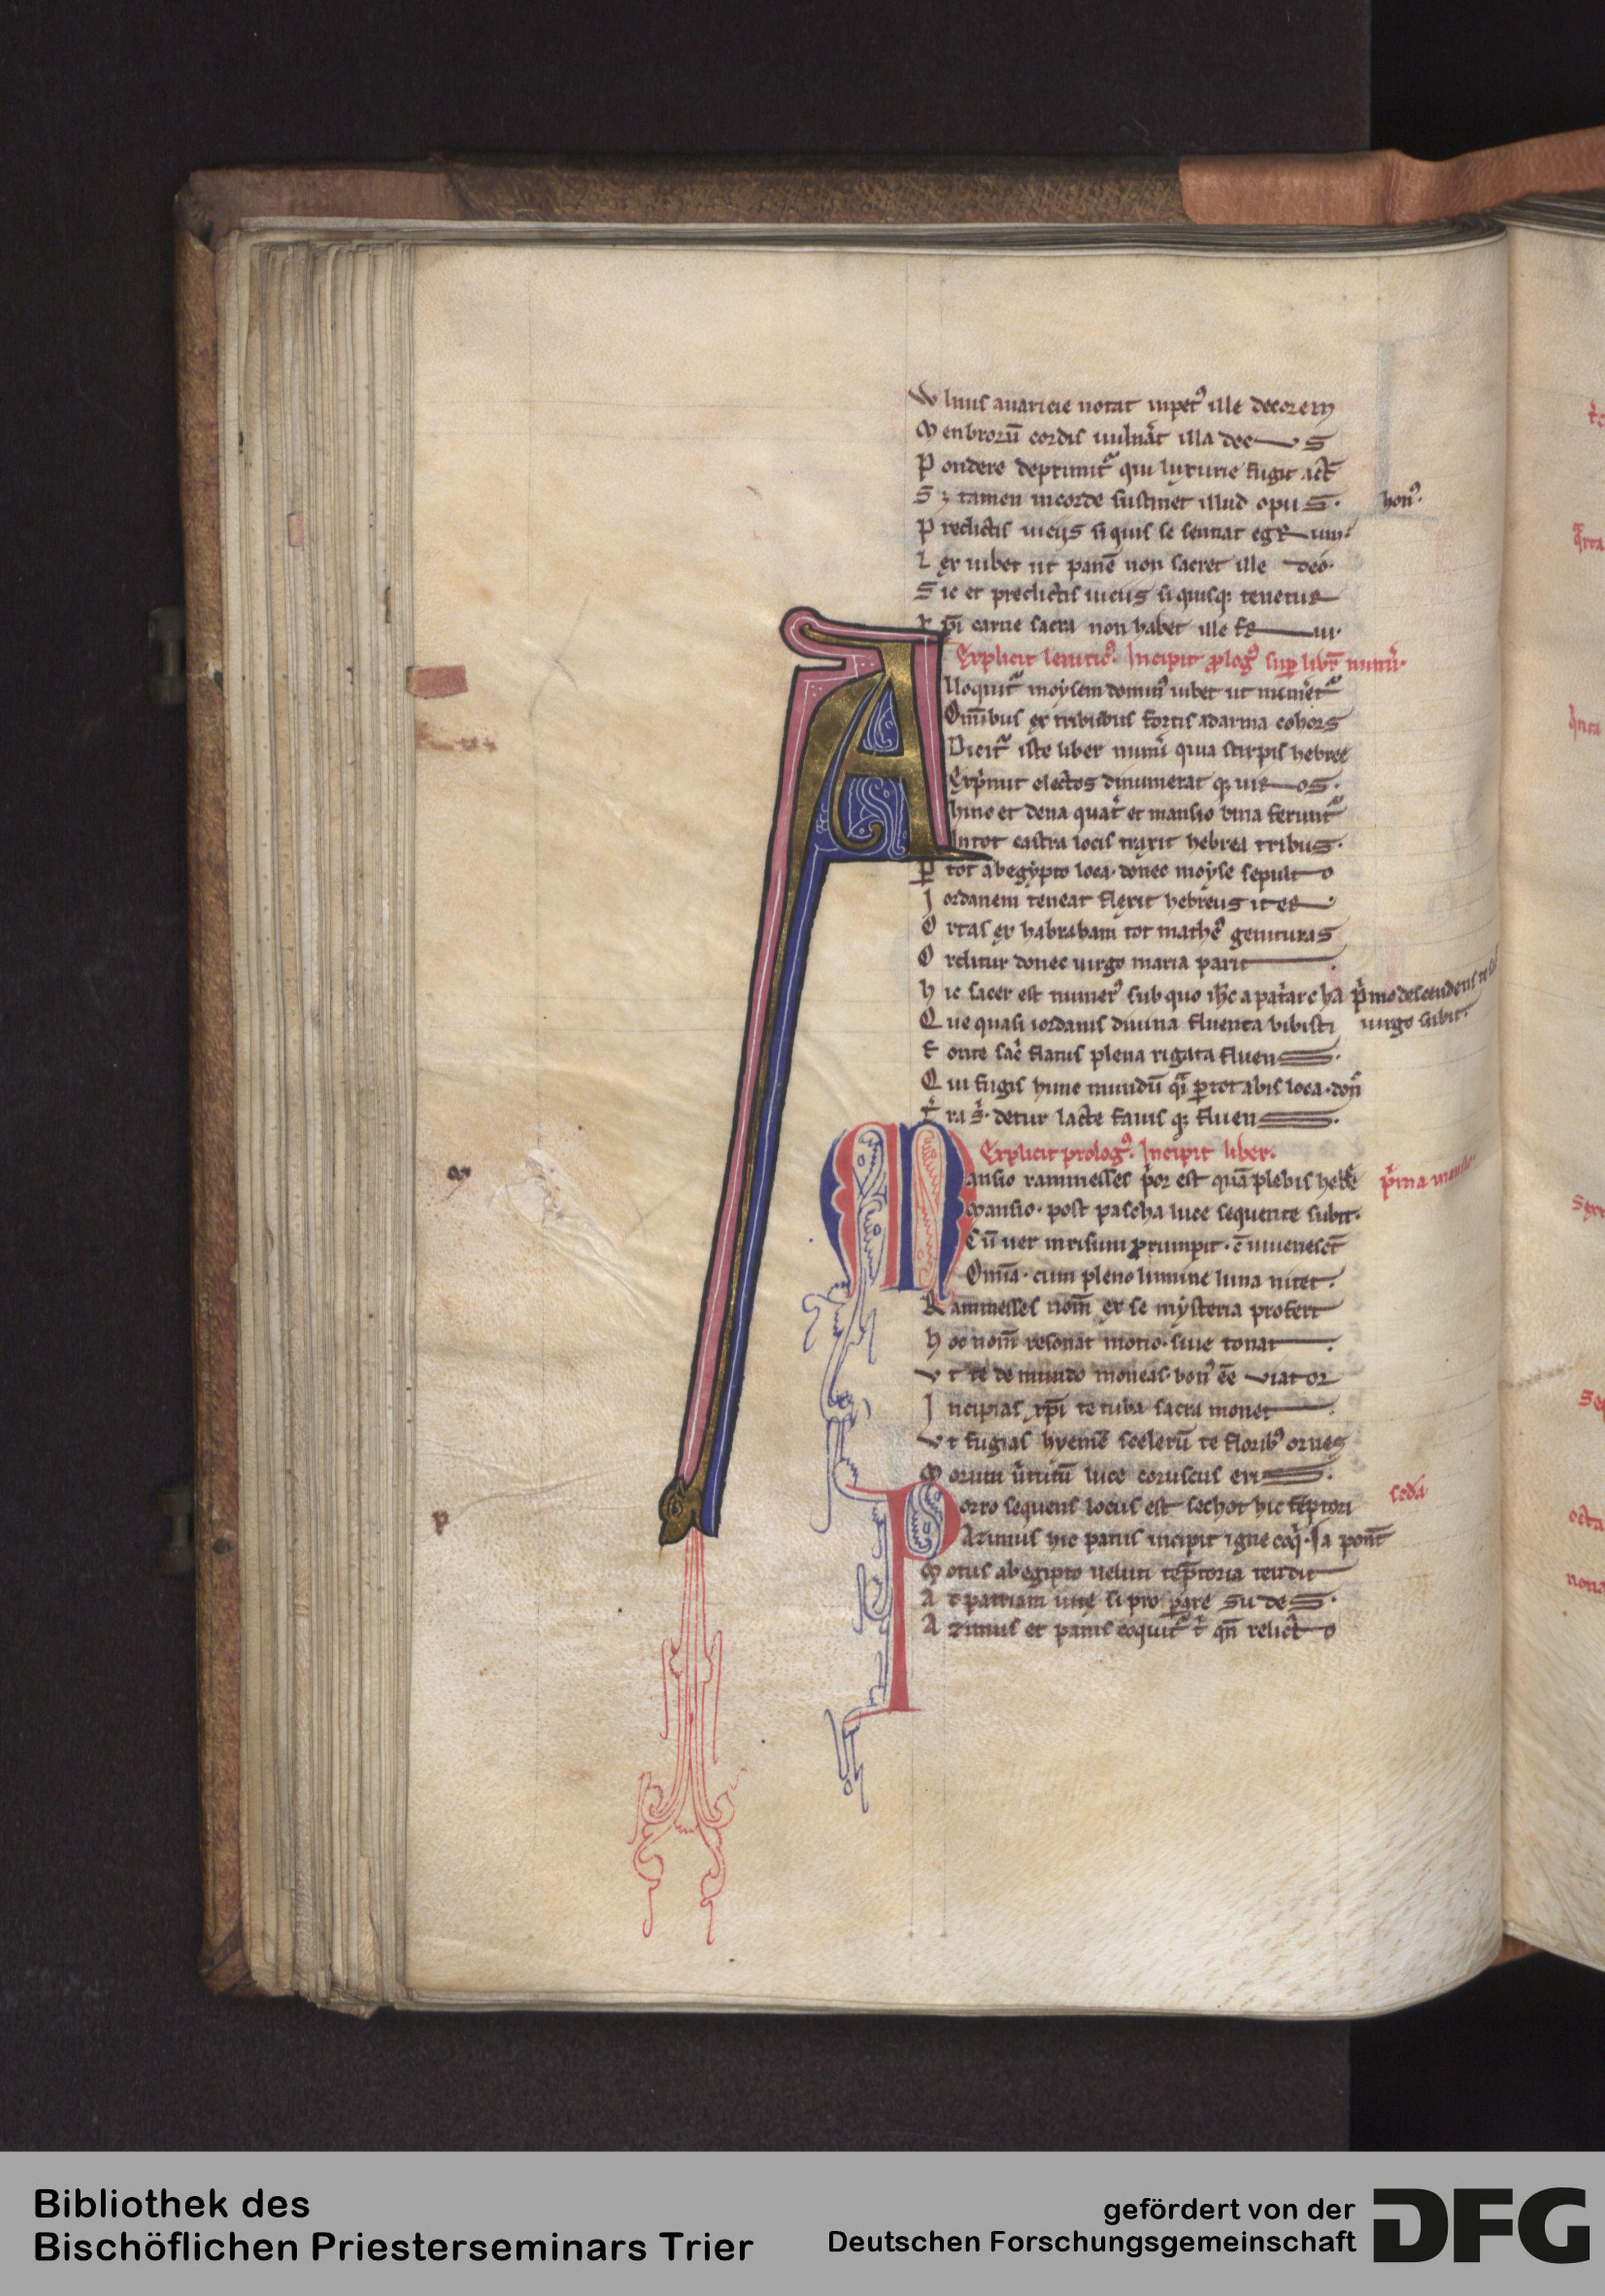 Vlnus avaricie notat inpetꝰ ille decorem
Menbrorū cordis uulnāt illa decus
Pondere deprimitᷣ qui luxurie fugit act̄
Sꝫ tamen in corde sustinet illud opus.
honꝰ.
Predictis uiciis si quis se sentiat egrum
Lex iubet ut panē non sacret ille deo.
Sic et predictis uiciis si quisqꝫ tenetur
xp̄i carne sacra non habet ille
Explicit leuiticꝰ. Incipit ꝓlogꝰ sup libr̄ numi.
Alloquitᷣ moysem dominꝰ iubet ut numetᷣ
Omībus ex tribubus fortis ad arma cohors
Dicitᷣ iste liber numi quia stirpis hebree
Exp̄mit electos dinumerat qꝫ uiros.
hinc et dena quat̄ et mansio bina feruntᷣ
In tot castra locis traxit hebrea tribus.
P tot ab egypto loca. donec moyse sepulto
Iordanem teneat flexit hebreus iter.
Ortas ex habraham tot matheꝰ genituras
Orditur donec uirgo maria parit.
hic sacer est numerꝰ sub quo ih̄c a pat̄archa
p̄mo descendens
uirgo subit.
Que quasi iordanis diuina fluenta bibisti
Fonte sac̄ flatus plena rigata fluens.
Qui fugis hunc mundū q̄i ꝑ tot abis loca. don̄
detur lacte fauis qꝫ fluens.
Explicit prologꝰ. Incipit liber.
Mansio rammesses p̄or est quā plebis hebre
p̄ma mansio
Mansio. post pascha luce sequente subit.
Cū uer in risum prumpit. c̄ iuuenesct̄
Omīa. cum pleno lumine luna nitet.
Rammesses nom̄ ex se mysteria profert
hoc nom̄ resonat motio. siue tonat.
Vt te de mundo moneas. bonꝰ ēē viator
Incipias xp̄i te tuba sacra monet.
Vt fugias hyemē scelerū te floribꝰ ornes
Morum uirtutū luce coruscus eris.
Porro sequens locus est sochot hic
seda
Azimus hic panis incipit igne coqi.
Motus ab egipto uelim tēptoria tendit
Ad patriam
Azimus et panis coquitᷣ qn̄ relicto
Bibliothek des
Bischöflichen Priesterseminars Trier
gefördert von der
Deutschen Forschungsgemeinschaft
DFG